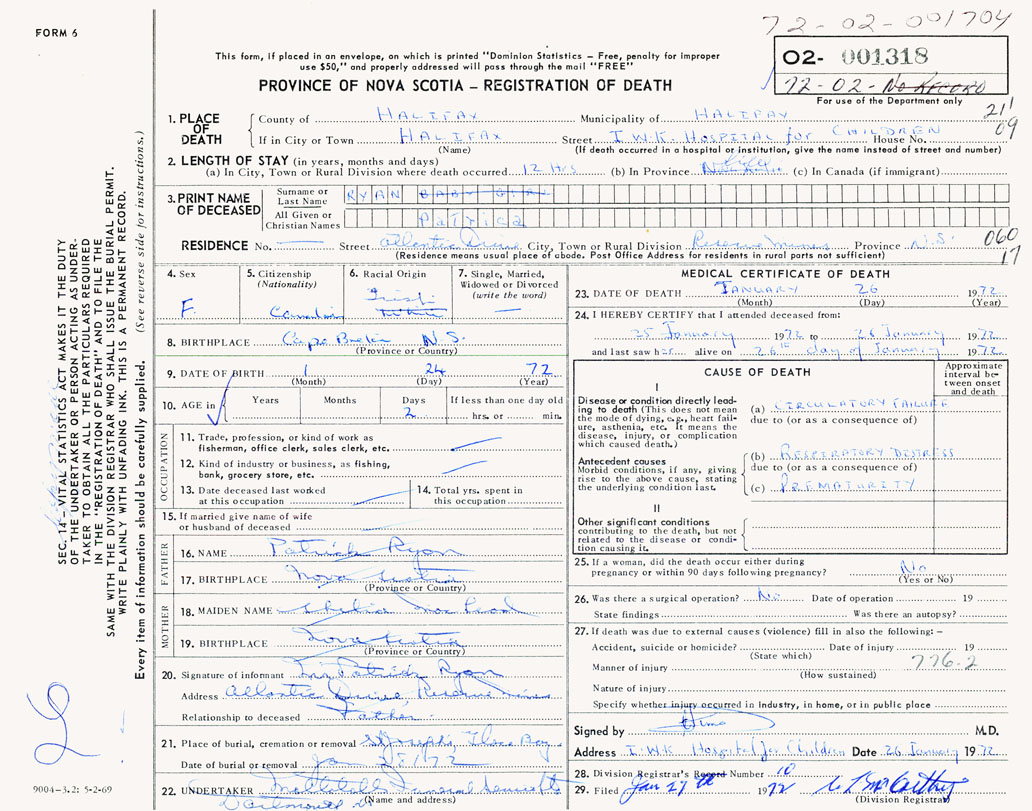 FORM 6
72-02-001704
02- 001318
72-02-No RECORD
For use of the Department only
This form, if placed in an envelope, on which is printed "Dominion Statistics — Free, penalty for improper
use $50," and properly addressed will pass through the mail "FREE"
PROVINCE OF NOVA SCOTIA — REGISTRATION OF DEATH
211
09
1. PLACE OF DEATH County of HALIFAX Municipality of HALIFAX
If in City or Town HALIFAX Street I.W.K. HOSPITAL for CHILDREN House No.
(Name) (If death occurred in a hospital or institution, give the name instead of street and number)
2. LENGTH OF STAY (in years, months and days)
(a) In City, Town or Rural Division where death occurred 12 Hrs (b) In Province life (c) In Canada (if immigrant)
3. PRINT NAME OF DECEASED Surname or Last Name RYAN BABY GIRL
All Given or Christian Names Patrica
RESIDENCE No. Street Atlantic Drive City, Town or Rural Division Reserve Mines Province N.S. 060
17
(Residence means usual place of abode. Post Office Address for residents in rural parts not sufficient)
4. Sex F.
5. Citizenship (Nationality) Canadian
6. Racial Origin Irish
7. Single, Married, Widowed or Divorced (write the word)
8. BIRTHPLACE Cape Breton N.S.
(Province or Country)
9. DATE OF BIRTH 1 24 72
(Month) (Day) (Year)
10. AGE in Years Months Days 2 If less than one day old hrs. or min.
OCCUPATION
11. Trade, profession, or kind of work as
fisherman, office clerk, sales clerk, etc.
12. Kind of industry or business, as fishing,
bank, grocery store, etc.
13. Date deceased last worked
at this occupation
14. Total yrs. spent in
this occupation
15. If married give name of wife
or husband of deceased
FATHER
16. NAME Patrick Ryan
17. BIRTHPLACE Nova Scotia
(Province or Country)
MOTHER
18. MAIDEN NAME
19. BIRTHPLACE Nova Scotia
(Province or Country)
20. Signature of informant Patrick Ryan
Address Atlantic Drive, Reserve Mines
Relationship to deceased Father
21. Place of burial, cremation or removal St Josephs, Glace Bay
Date of burial or removal Jan 28/72
22. UNDERTAKER Funeral
(Name and address)
Dartmouth
MEDICAL CERTIFICATE OF DEATH
23. DATE OF DEATH JANUARY 26 1972
(Month) (Day) (Year)
24. I HEREBY CERTIFY that I attended deceased from:
25 January 1972 to 26 January 1972
and last saw her alive on 26th day of January 1972
CAUSE OF DEATH
Approximate interval between onset and death
I
Disease or condition directly leading to death (This does not mean the mode of dying, e.g., heart failure, asthenia, etc. It means the disease, injury, or complication which caused death.)
(a) CIRCULATORY FAILURE
due to (or as a consequence of)
Antecedent causes
Morbid conditions, if any, giving rise to the above cause, stating the underlying condition last.
(b) RESPIRATORY DISTRESS
due to (or as a consequence of)
(c) PREMATURITY
II
Other significant conditions
contributing to the death, but not related to the disease or condition causing it.
25. If a woman, did the death occur either during
pregnancy or within 90 days following pregnancy? No
(Yes or No)
26. Was there a surgical operation? No Date of operation 19
State findings Was there an autopsy?
27. If death was due to external causes (violence) fill in also the following: —
Accident, suicide or homicide? Date of injury 19
(State which)
776-2
Manner of injury
(How sustained)
Nature of injury
Specify whether injury occurred in Industry, in home, or in public place
Signed by M.D.
Address I.W.K Hospital for Children Date 26 January 1972
28. Division Registrar's Record Number 10
29. Filed Jan 27th 1972
(Division Registrar)
SEC. 14—VITAL STATISTICS ACT MAKES IT THE DUTY
OF THE UNDERTAKER OR PERSON ACTING AS UNDERTAKER TO OBTAIN ALL THE PARTICULARS REQUIRED
IN THE "REGISTRATION OF DEATH" AND TO FILE THE
SAME WITH THE DIVISION REGISTRAR WHO SHALL ISSUE THE BURIAL PERMIT.
WRITE PLAINLY WITH UNFADING INK. THIS IS A PERMANENT RECORD.
Every item of information should be carefully supplied. (See reverse side for instructions.)
9004-3.2: 5-2-69